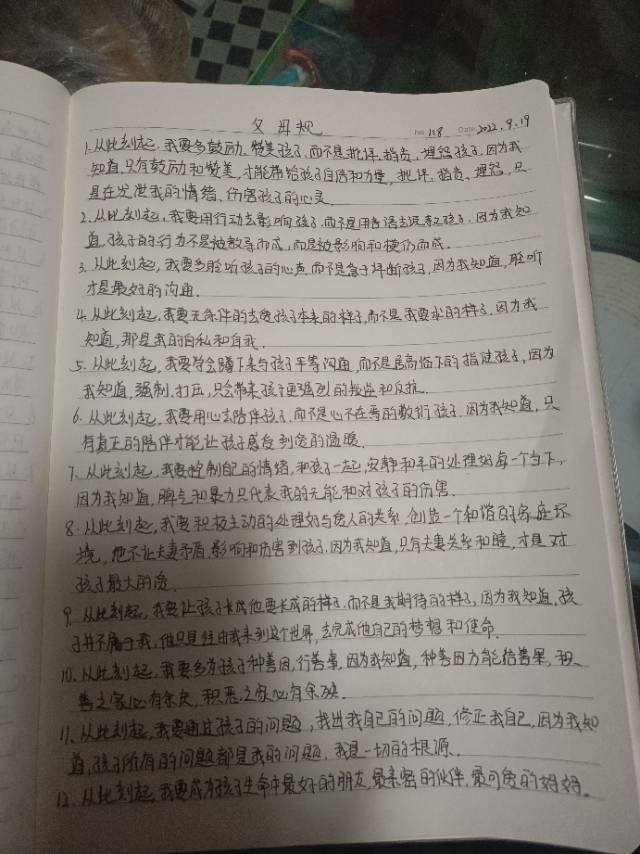 父母规
No. 118 Date 2022.9.19
1.从此刻起,我要多鼓励、赞美孩子,而不是批评、指责、埋怨孩子,因为我
知道,只有鼓励和赞美,才能带给孩子自信和力量,批评、指责、埋怨,只
是在发泄我的情绪、伤害孩子的心灵.
2.从此刻起,我要用行动去影响孩子,而不是用言语去说教孩子,因为我知
道,孩子的行为不是被教导而成,而是被影响和模仿而成.
3.从此刻起,我要多聆听孩子的心声,而不是急于评断孩子,因为我知道,聆听
才是最好的沟通.
4.从此刻起,我要无条件的去爱孩子本来的样子,而不是我要求的样子,因为我
知道,那是我的自私和自我.
5.从此刻起,我要学会蹲下来与孩子平等沟通,而不是居高临下的指使孩子,因为
我知道,强制、打压,只会带来孩子更强烈的叛逆和反抗.
6.从此刻起,我要用心去陪伴孩子,而不是心不在焉的敷衍孩子,因为我知道,只
有真正的陪伴才能让孩子感受到爱的温暖.
7.从此刻起,我要控制自己的情绪,和孩子一起,安静和平的处理好每一个当下,
因为我知道,脾气和暴力只代表我的无能和对孩子的伤害.
8.从此刻起,我要积极主动的处理好与爱人的关系,创造一个和谐的家庭环
境,绝不让夫妻矛盾影响和伤害到孩子,因为我知道,只有夫妻关系和睦,才是对
孩子最大的爱.
9.从此刻起,我要让孩子长成他要长成的样子,而不是我期待的样子,因为我知道,孩
子并不属于我,他只是经由我来到这个世界,去完成他自己的梦想和使命.
10.从此刻起,我要多为孩子种善因,行善事,因为我知道,种善因方能结善果,积
善之家必有余庆,积恶之家必有余殃.
11.从此刻起,我要通过孩子的问题,找出我自己的问题,修正我自己,因为我知
道,孩子所有的问题都是我的问题,我是一切的根源.
12.从此刻起,我要成为孩子生命中最好的朋友,最亲密的伙伴,最可爱的妈妈.